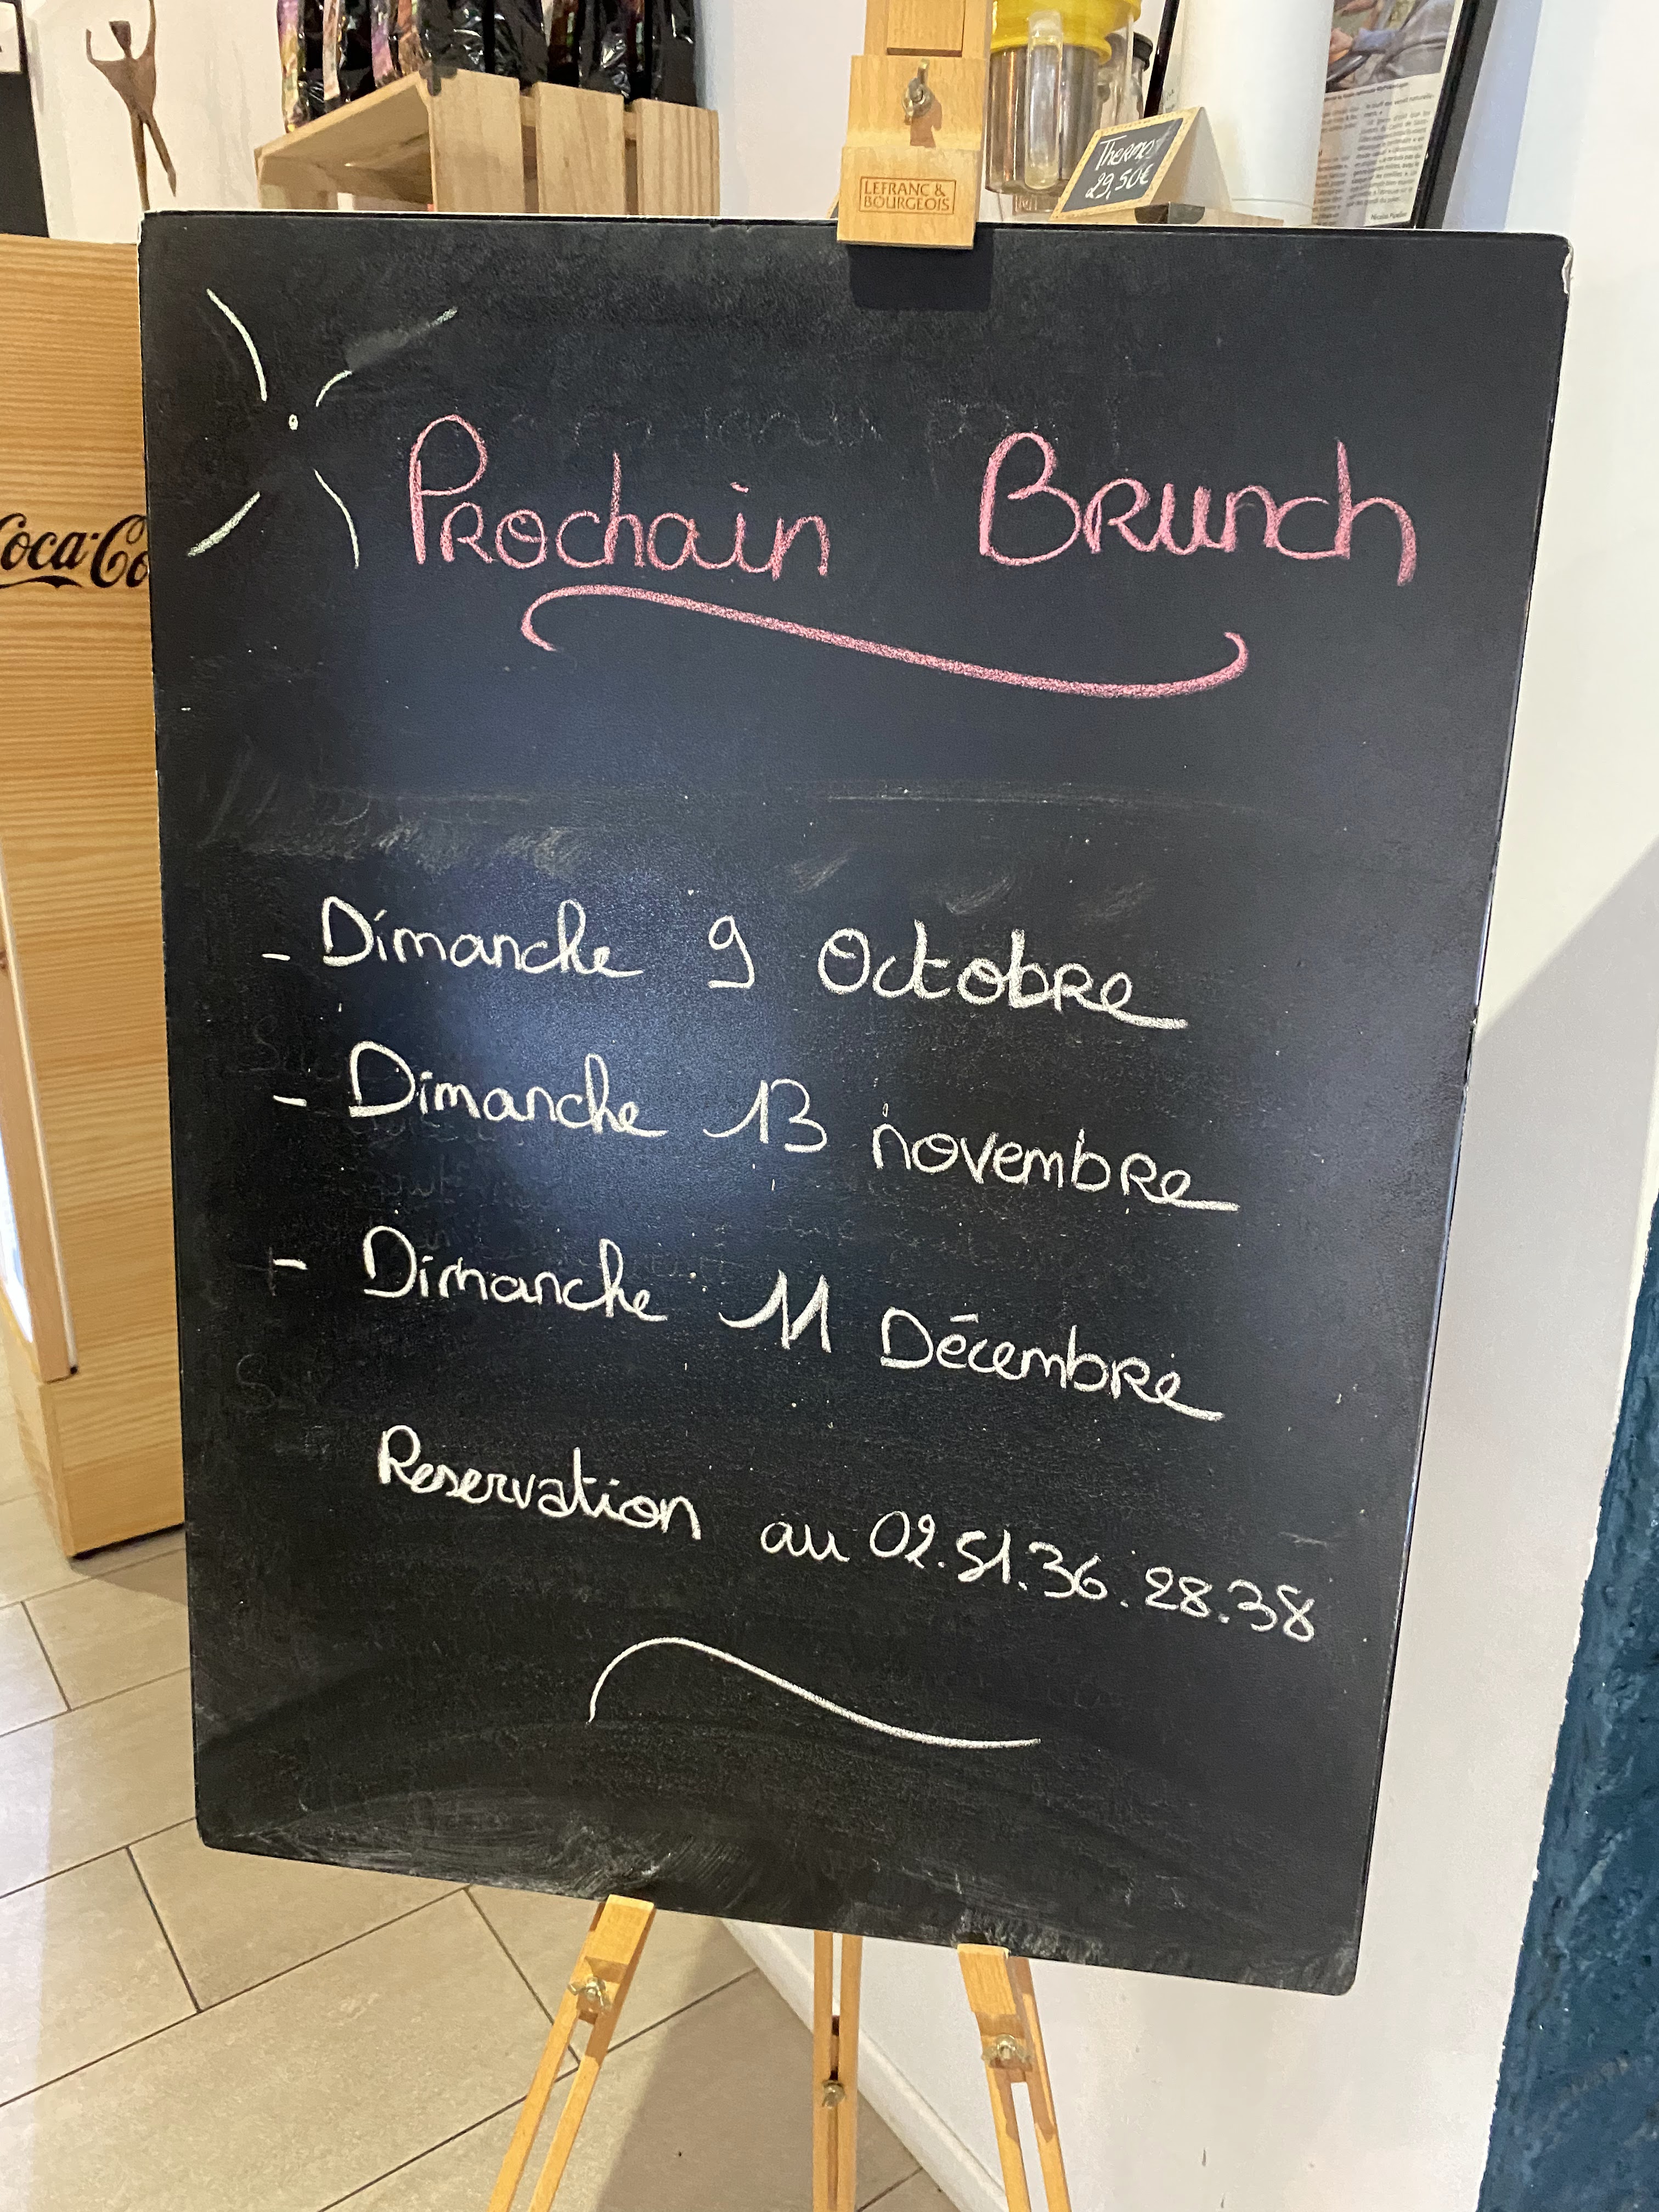 Thermos
29,50€
LEFRANC &
BOURGEOIS
Coca-Co
Prochain Brunch
- Dimanche 9 Octobre
- Dimanche 13 novembre
- Dimanche 11 Décembre
Reservation au 02.51.36.28.38